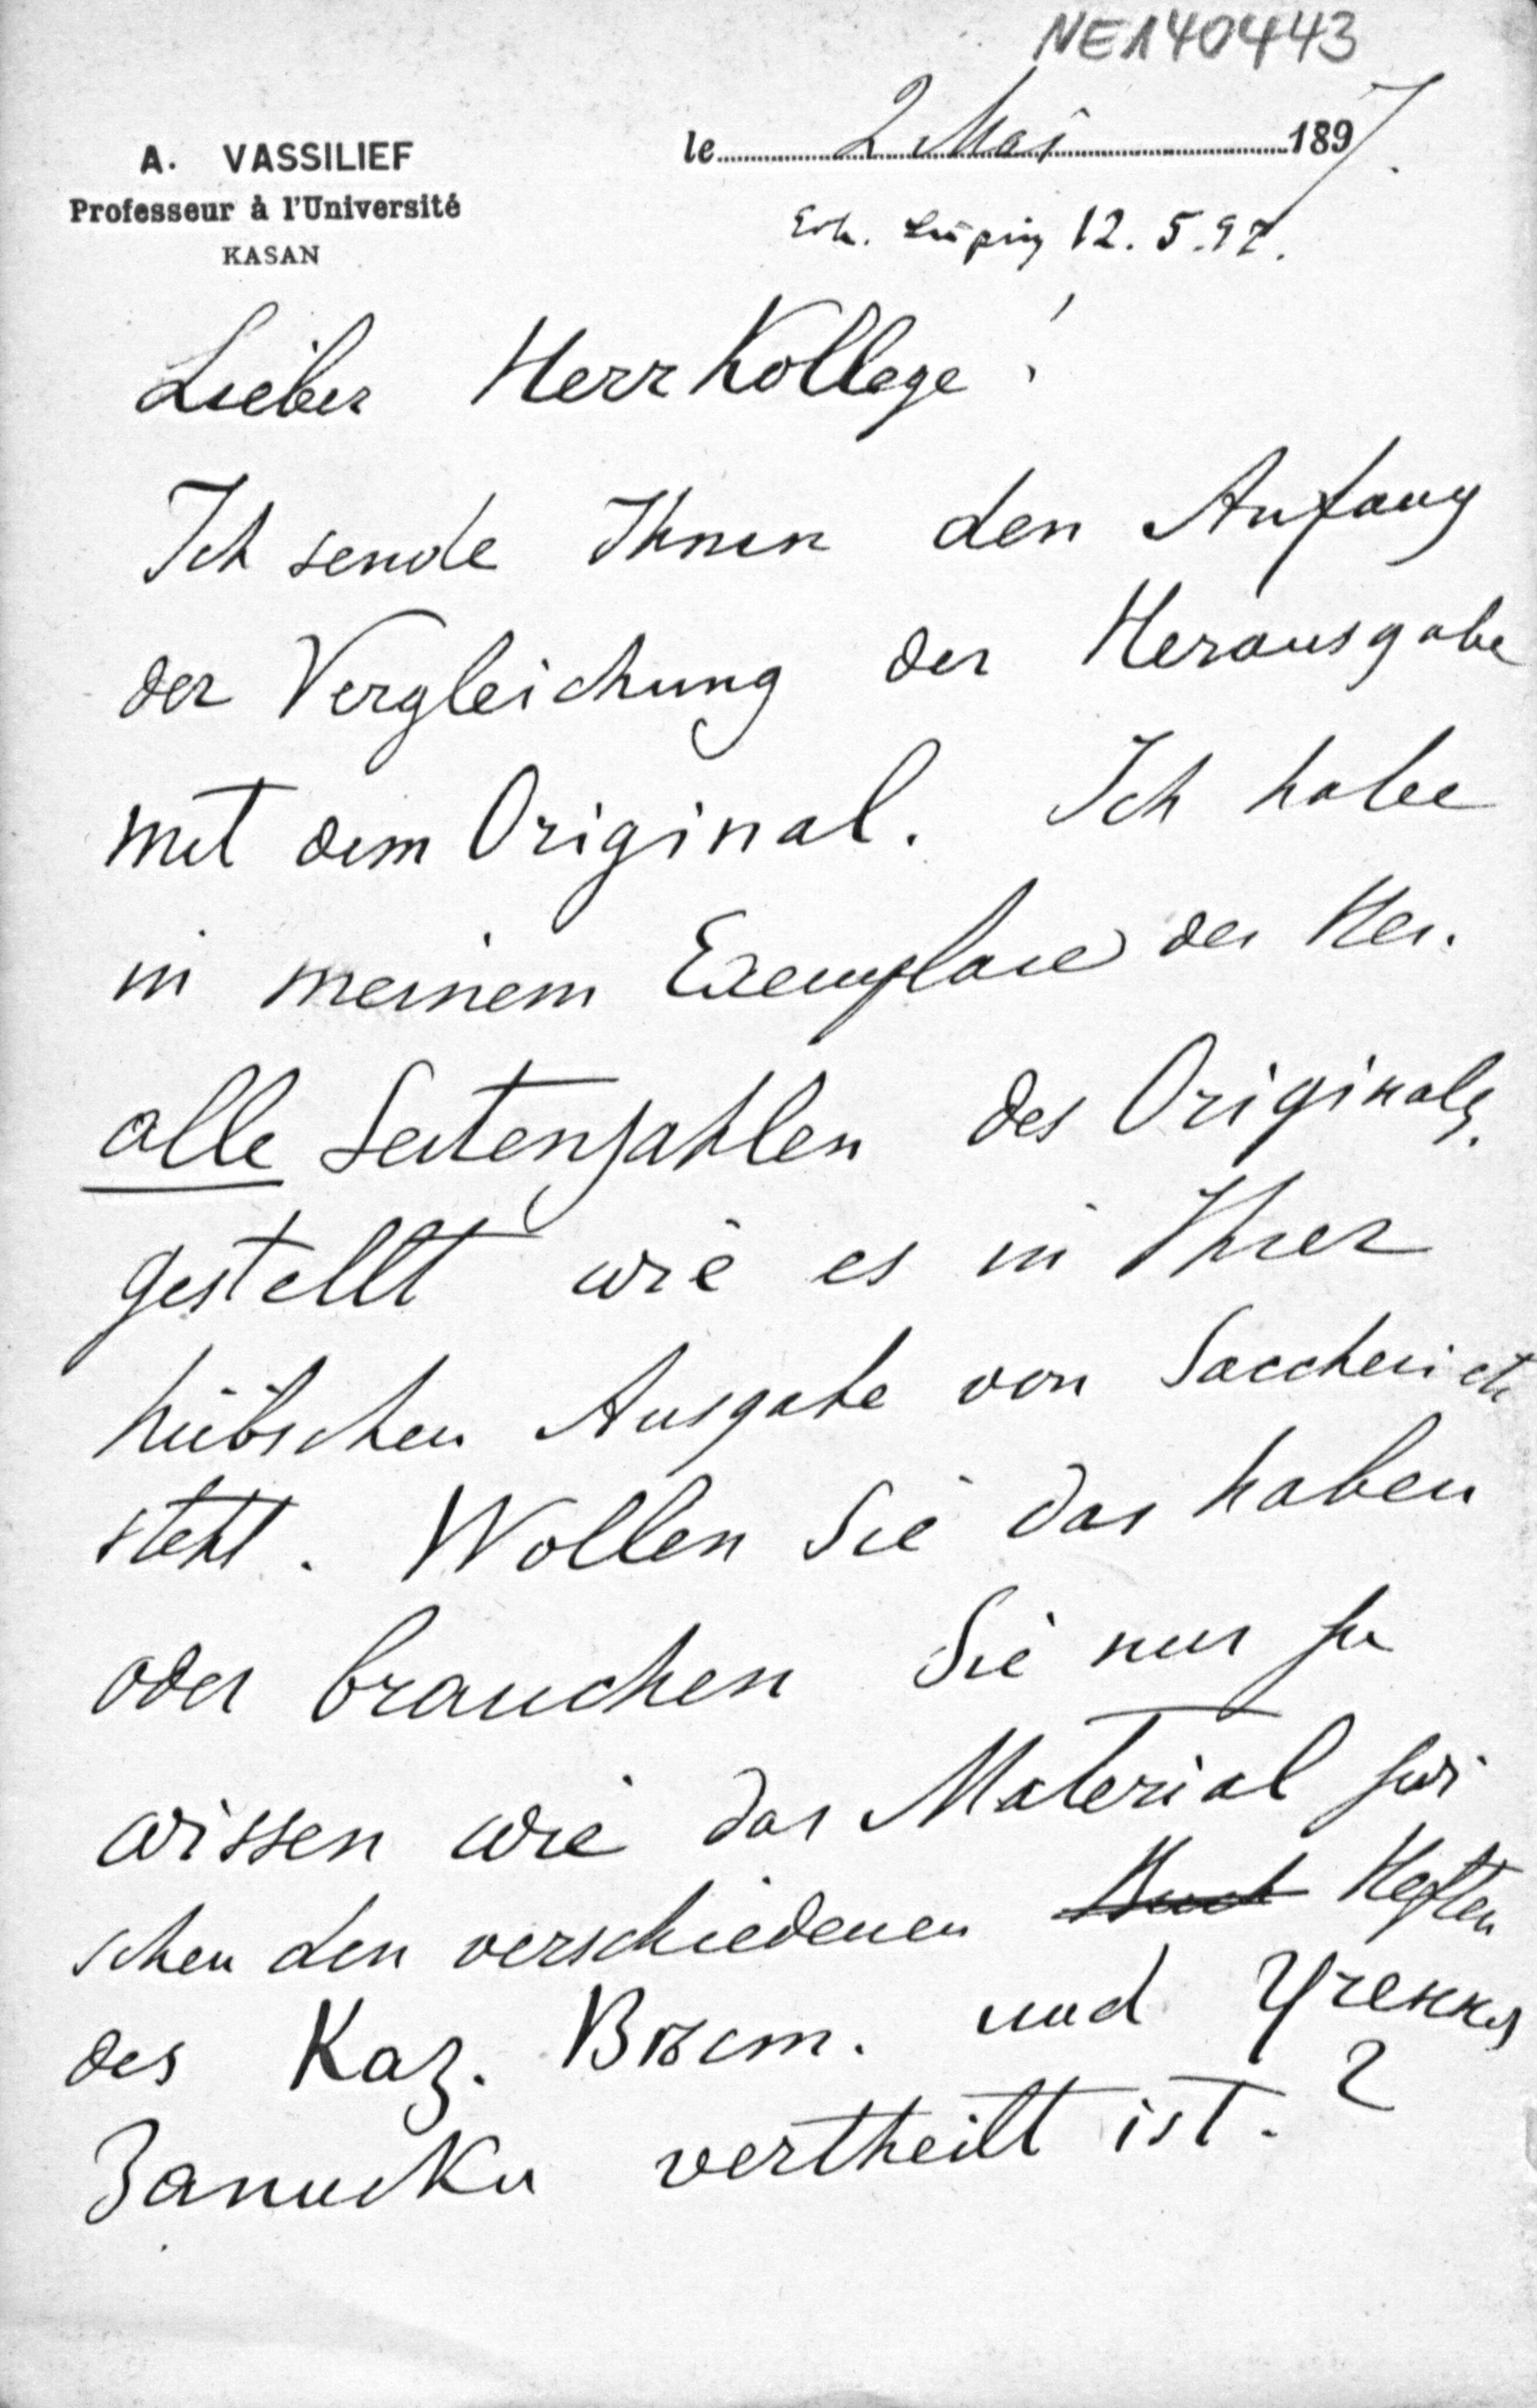 NE140443
A. VASSILIEF
Professeur à l'Université
KASAN
le 2 Mai 1897.
Erh. Leipzig 12.5.97.
Lieber Herr Kollege!
Ich sende Ihnen den Anfang
der Vergleichung der Herausgabe
mit dem Original. Ich habe
in meinem Exemplare der Her.
alle Seitenzahlen des Originals
gestellt wie es in Ihrer
hübschen Ausgabe von Saccheri etc
steht. Wollen Sie das haben
oder brauchen Sie nur zu
wissen wie das Material zwi
schen den verschiedenen Heften
des Kaz. Вѣст. und Ученыя
Записки vertheilt ist. ?